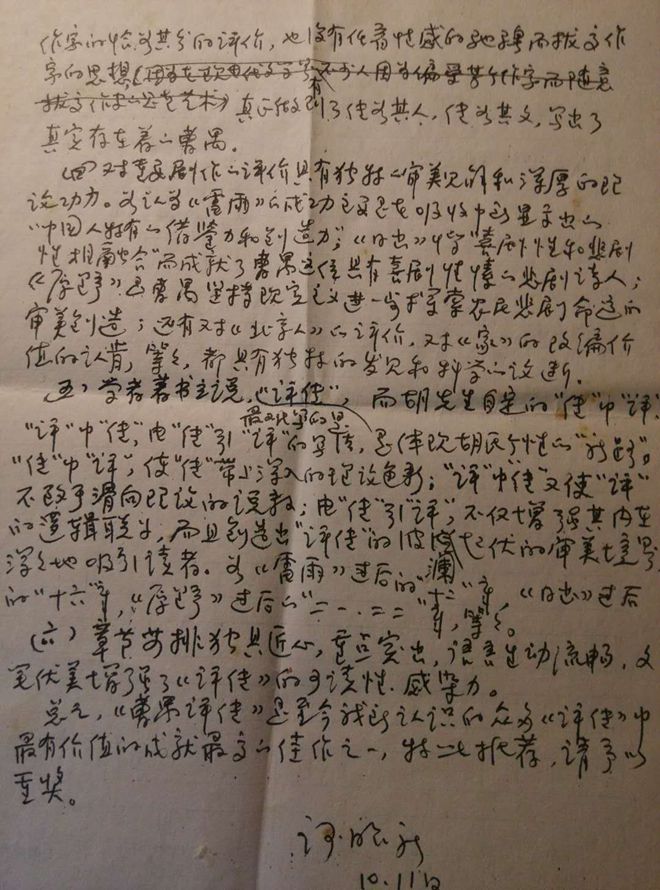 作家的恰如其分的评价，也没有任有性感的驰骋而拔高作
家的思想
真正做到了传如其人，传如其文，写出了
真实存在着的曹禺。
(四) 对主要剧作的评价具有独特的审美见解和深厚的理
论功力。如认为《雷雨》的成功主要是在吸收中所显示出的
"中国人特有的借鉴力和创造力"；《日出》中"喜剧性和悲剧
性相融合"而成就了曹禺这位具有喜剧性情的悲剧诗人；
《原野》是曹禺坚持现实主义进一步探索农民悲剧命运的
审美创造；还有对《北京人》的评价，对《家》的改编价
值的认肯，等等，都具有独特的发见和科学的论断。
(五) 学者著书立说，《评传》，而胡先生自定的"传"中"评"
"评"中"传"，由"传"引"评"的写法，最
"传"中"评"，使"传"带上深入的理论色彩；"评"中"传"又使"评"
不致于滑向理论的说教；由"传"引"评"，不仅增强其内在
的逻辑联系，而且创造出"评传"的波澜起伏的审美境界，
深深地吸引读者。如《雷雨》过后的"十二"章，《日出》过后
的"十六"章，《原野》过后的 章，等等。
(六) 章节安排独具匠心，重点突出，语言生动流畅，文
笔优美增强了《评传》的可读性、感染力。
总之，《曹禺评传》是至今我所认识的众多《评传》中
最有价值的成就最高的佳作之一，特此推荐，请予以
重奖。
10.11日